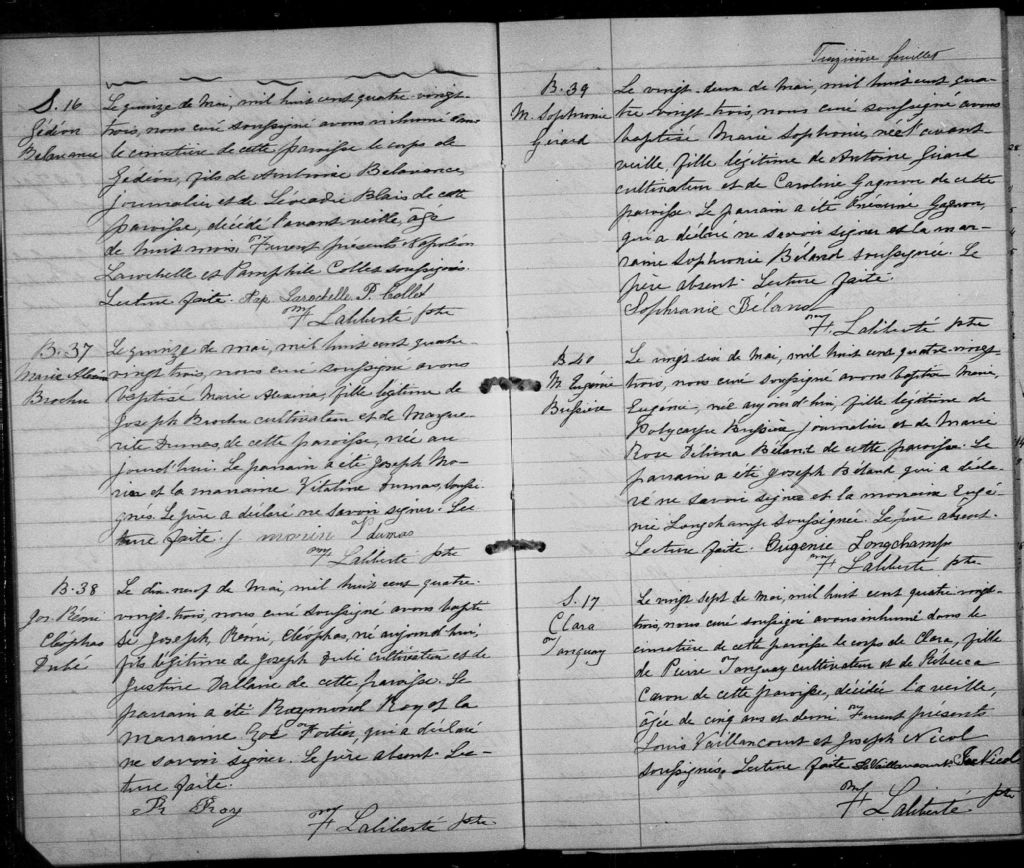 S. 16
Gédéon
Belavance
Le quinze de Mai, mil huit cent quatre-vingt-
trois, nous curé soussigné avons inhumé dans
le cimetière de cette paroisse le corps de
Gédéon, fils de Ambroise Belavance,
journalier et de Léocadie Blais de cette
paroisse, décédé l'avant veille, âgé
de huit mois. Furent présents Napoléon
Larochelle et Pamphile Collet soussignés.
Lecture faite. Nap. Larochelle P. Collet
F Laliberté ptre
B. 37
Marie Alexina
Brochu
Le quinze de mai, mil huit cent quatre
vingt trois, nous curé soussigné avons
baptisé Marie Alexina, fille légitime de
Joseph Brochu cultivateur et de Margue-
rite Dumas, de cette paroisse, née au
jourd'hui. Le parrain a été Joseph Mo-
rin et la marraine Vitaline Dumas, soussi-
gnés. Le père a déclaré ne savoir signer. Lec-
ture faite. J. morin V Dumas
F Laliberté ptre
B. 38
Jos. Rémi
Cléophas
Dubé
Le dix neuf de Mai, mil huit cent quatre-
vingt-trois, nous curé soussigné avons bapti-
sé Joseph, Rémi, Cléophas, né aujourd'hui,
fils légitime de Joseph Dubé cultivateur et de
Justine Dallaire de cette paroisse. Le
parrain a été Raymond Roy et la
marraine Zoé Fortier, qui a déclaré
ne savoir signer. Le père absent. Lec-
ture faite.
R Roy
F Laliberté ptre
Treizième feuillet
B. 39
M. Sophronie
Girard
Le vingt-deux de Mai, mil huit cent, qua-
tre-vingt-trois, nous curé soussigné avons
baptisé Marie Sophronie, née l'avant-
veille, fille légitime de Antoine Girard
cultivateur et de Caroline Gagnon de cette
paroisse. Le parrain a été Onésime Gagnon,
qui a déclaré ne savoir signer et la mar-
raine Sophronie Béland soussignée. Le
père absent. Lecture faite.
Sophranie Béland
F Laliberté ptre
B 40
M. Eugénie
Bussière
Le vingt-six de Mai, mil huit cent quatre-vingt-
trois, nous curé soussigné avons baptisé Marie,
Eugénie, née aujourd'hui, fille légitime de
Polycarpe Bussière journalier et de Marie
Rose Délima Béland de cette paroisse. Le
parrain a été Joseph Béland qui a décla-
ré ne savoir signer et la marraine Eugé-
nie Longchamp soussignée. Le père absent.
Lecture faite. Eugenie Longchamp
F Laliberté ptre
S. 17
Clara
Tanguay
Le vingt sept de Mai, mil huit cent quatre vingt-
trois, nous curé soussigné avons inhumé dans le
cimetière de cette paroisse le corps de Clara, fille
de Pierre Tanguay cultivateur et de Rébecca
Caron de cette paroisse, décédée la veille,
âgée de cinq ans et demi. Furent présents
Louis Vaillancourt et Joseph Nicol
soussignés. Lecture faite L. Vaillancourt Jos Nicol
F Laliberté ptre